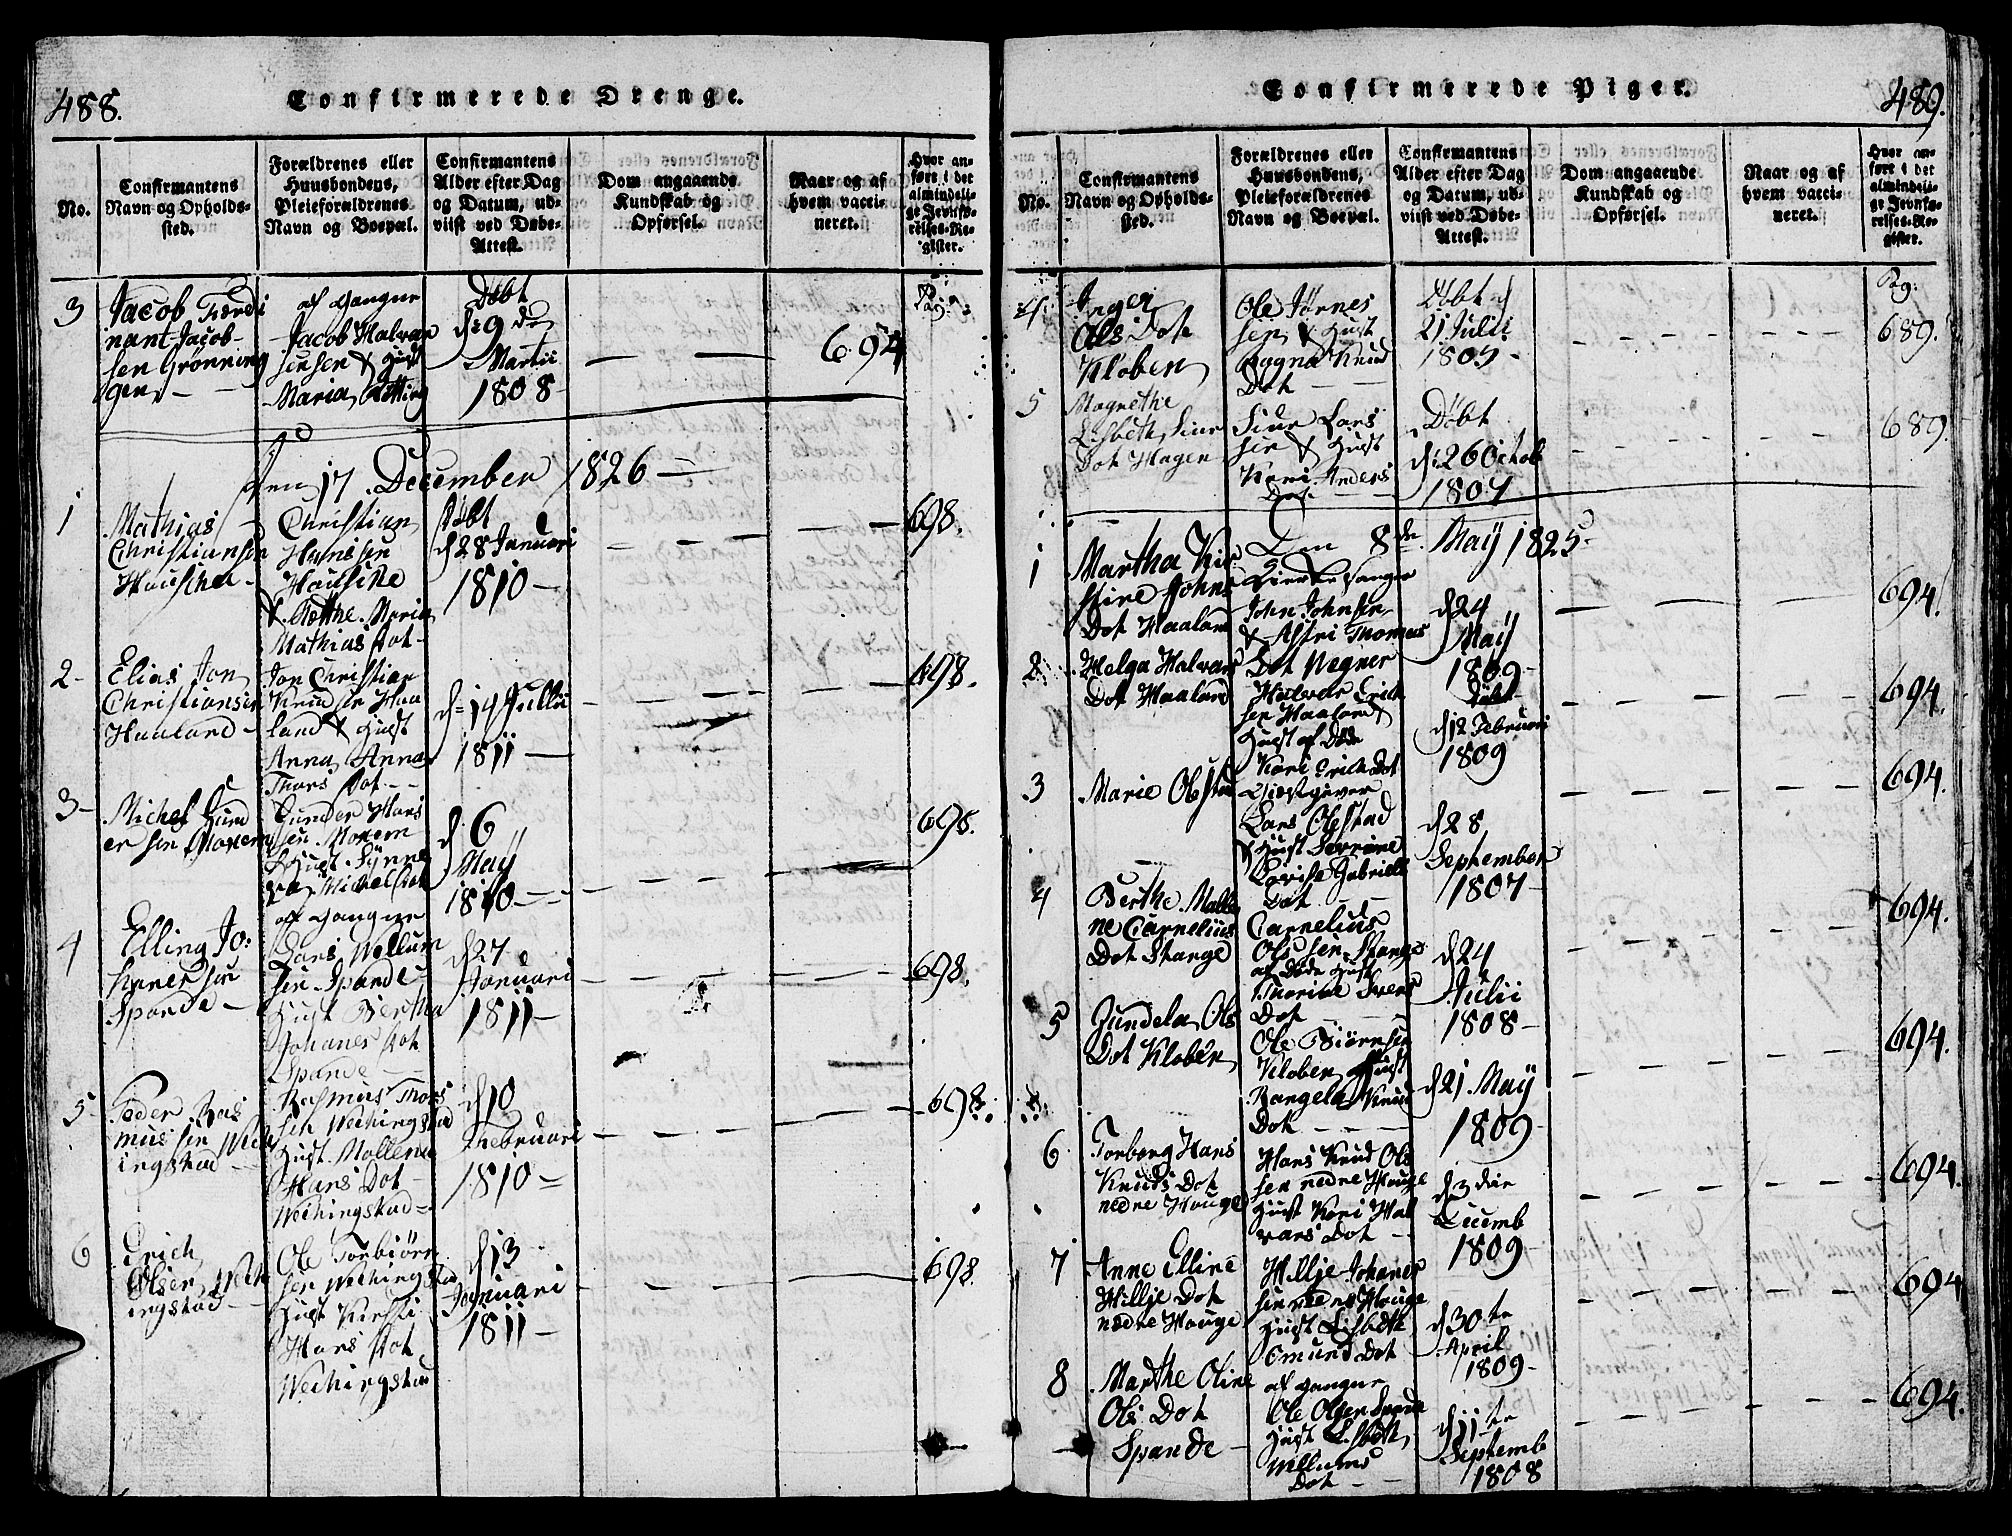 488.
Confirmerede Drenge.
No.
Confirmantens
Navn og Opholds-
sted.
Forældrenes eller
Huusbondens,
Pleieforældrenes
Navn og Boepæl.
Confirmantens
Alder efter Dag
og Datum, ud-
viist ved Døbe-
Attest.
Dom angaaende
Kundskab og
Opførsel.
Naar og af
hvem vacci-
neret.
Hvor an-
ført i det
almindeli-
ge Jevnfø-
relses-Re-
gister.
3
Jacob Ferdi
nant Jacob-
sen Grønning
gen
af gangne
Jacob Halvar
sen &
Maria
Døbt
9 de
Martii
1808
694
Pag:
Den 17 December 1826
1
Mathias
Christiansen
Christian
Hansen
& Mærthe Maria
Mathias Dot
Døbt
d 28 Januari
1810
698.
2
Elias Jon
Christiansen
Haaland
Jon Christian
Knudsen Haa
land & Hust
Anna Anna
Thors Dot
d 14 Jullii
1811
698.
3
Michel Gund
ersen
Gunder Hans
sen
Hust Synne
va Michels Dot
d 6
May
1810
698.
4
Elling Jo:
hanessen
Spande
af gangne
Lars Wellum
sen Spande
Hust Bertha
Johanes Dot
Spande
d 27
Januari
1811
698.
5
Peder Ras
mussen Wech
ingstad
Rasmus Thors
sen Wechingstad
Hust Mallena
Hans Dot
Wechingstad
d 10
Februari
1810
698.
6
Erich
Olsen Wech
ingstad
Ole Torbiørn
sen Wechingstad
Hust Kirsti
Hans Dot
Wechingstad
d 13
Januari
1811
698
489.
Confirmerede Piger.
No.
Confirmantens
Navn og Opholds-
sted.
Forældrenes eller
Huusbondens,
Pleieforældrenes
Navn og Boepæl.
Confirmantens
Alder efter Dag
og Datum, ud-
viist ved Døbe-
Attest.
Dom angaaende
Kundskab og
Opførsel.
Naar og af
hvem vacci-
neret.
Hvor an-
ført i det
almindeli-
ge Jevnfø-
relses-Re-
gister.
4
Inger
Ols Dot
Kloben
Ole
sen & Hust
Ragna Knud
Dot
Døbt d
21 Julii
Pag:
689.
5
Magrethe
Lisbeth Siur
Dot Hagen
Siur Lars
sen & Hust
Kari Anders
Dot
Døbt
d 26 Octob
1807
689.
Den 8de May 1825
1
Martha Kir
stine Johns
Dot Haaland
Kierkesanger
John Johnsen
& Astri Thomas
Dot Wegner
d 24
May
1809
694.
2
Helga Halvars
Dot Haaland
Halvar Erich
sen Haaland
Hust af Døde
Kari Erich Dot
Døbt
d 12 Februari
1809
694.
3
Marie Olestad
Giæstgiver
Lars Olestad
& Hust Serrine
Lovisa Gabriels
Dot
d 28
September
1807
694.
4
Berthe Malle
ne Carnelius
Dot Stange
Carnelius
Olsen Stange
af Døde Hust
Thorine Svens
Dot
d 24
Julii
1808
694.
5
Gundela Ols
Dot Kloben
Ole Biørnsen
Kloben Hust
Rangela Knud
Dot
d 21 May
1809
694.
6
Torborg Hans
Knuds Dot
nedre Houge
Hans Knud Ols
sen nedre Houge
Hust Kari Hal
vars Dot
d 3 die
Decemb
1809
694.
7
Anne Elline
Willje Dot
nedre Houge
Willje Johanes
sen nedre Houge
Hust Lisbeth
Omund Dot
d 30te
April
1809
694
8
Marthe Oline
Ols Dot
Spande
af gangne
Ole Olsen Spande
Hust Lisbeth
Wellums
Dot
d 11te
Septemb
1808
694.